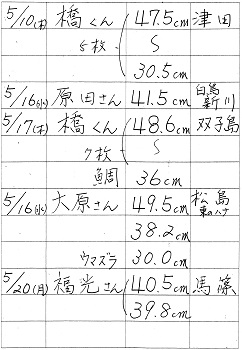 5/10(木) 橋くん 47.5cm 津田
5枚 〜
30.5cm
5/16(水) 原田さん 41.5cm 白鳥 新川
5/17(木) 橋くん 48.6cm 双子島
7枚 〜
鯛 36cm
5/16(水) 大原さん 49.5cm 松島 東のハナ
38.2cm
ウマズラ 30.0cm
5/20(月) 福光さん 40.5cm 馬篠
39.8cm